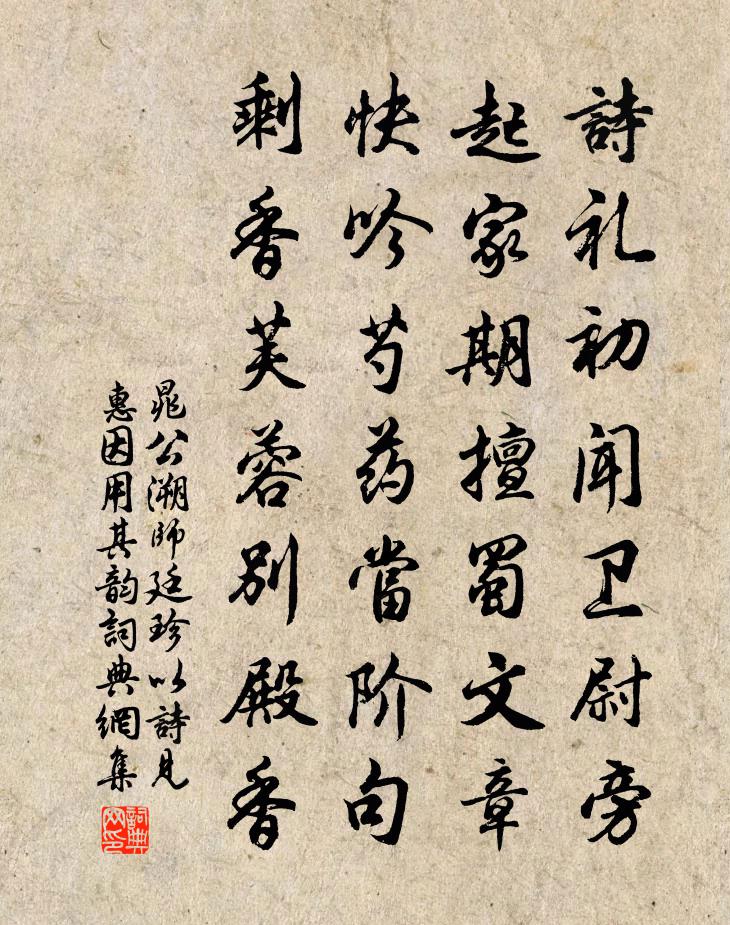 詩礼初闻卫尉旁
起家期擅蜀文章
快吟芍药當阶句
剩香芙蓉别殿香
晁公溯師廷珍以詩見
惠因用其韵詞典網集
詞典网印